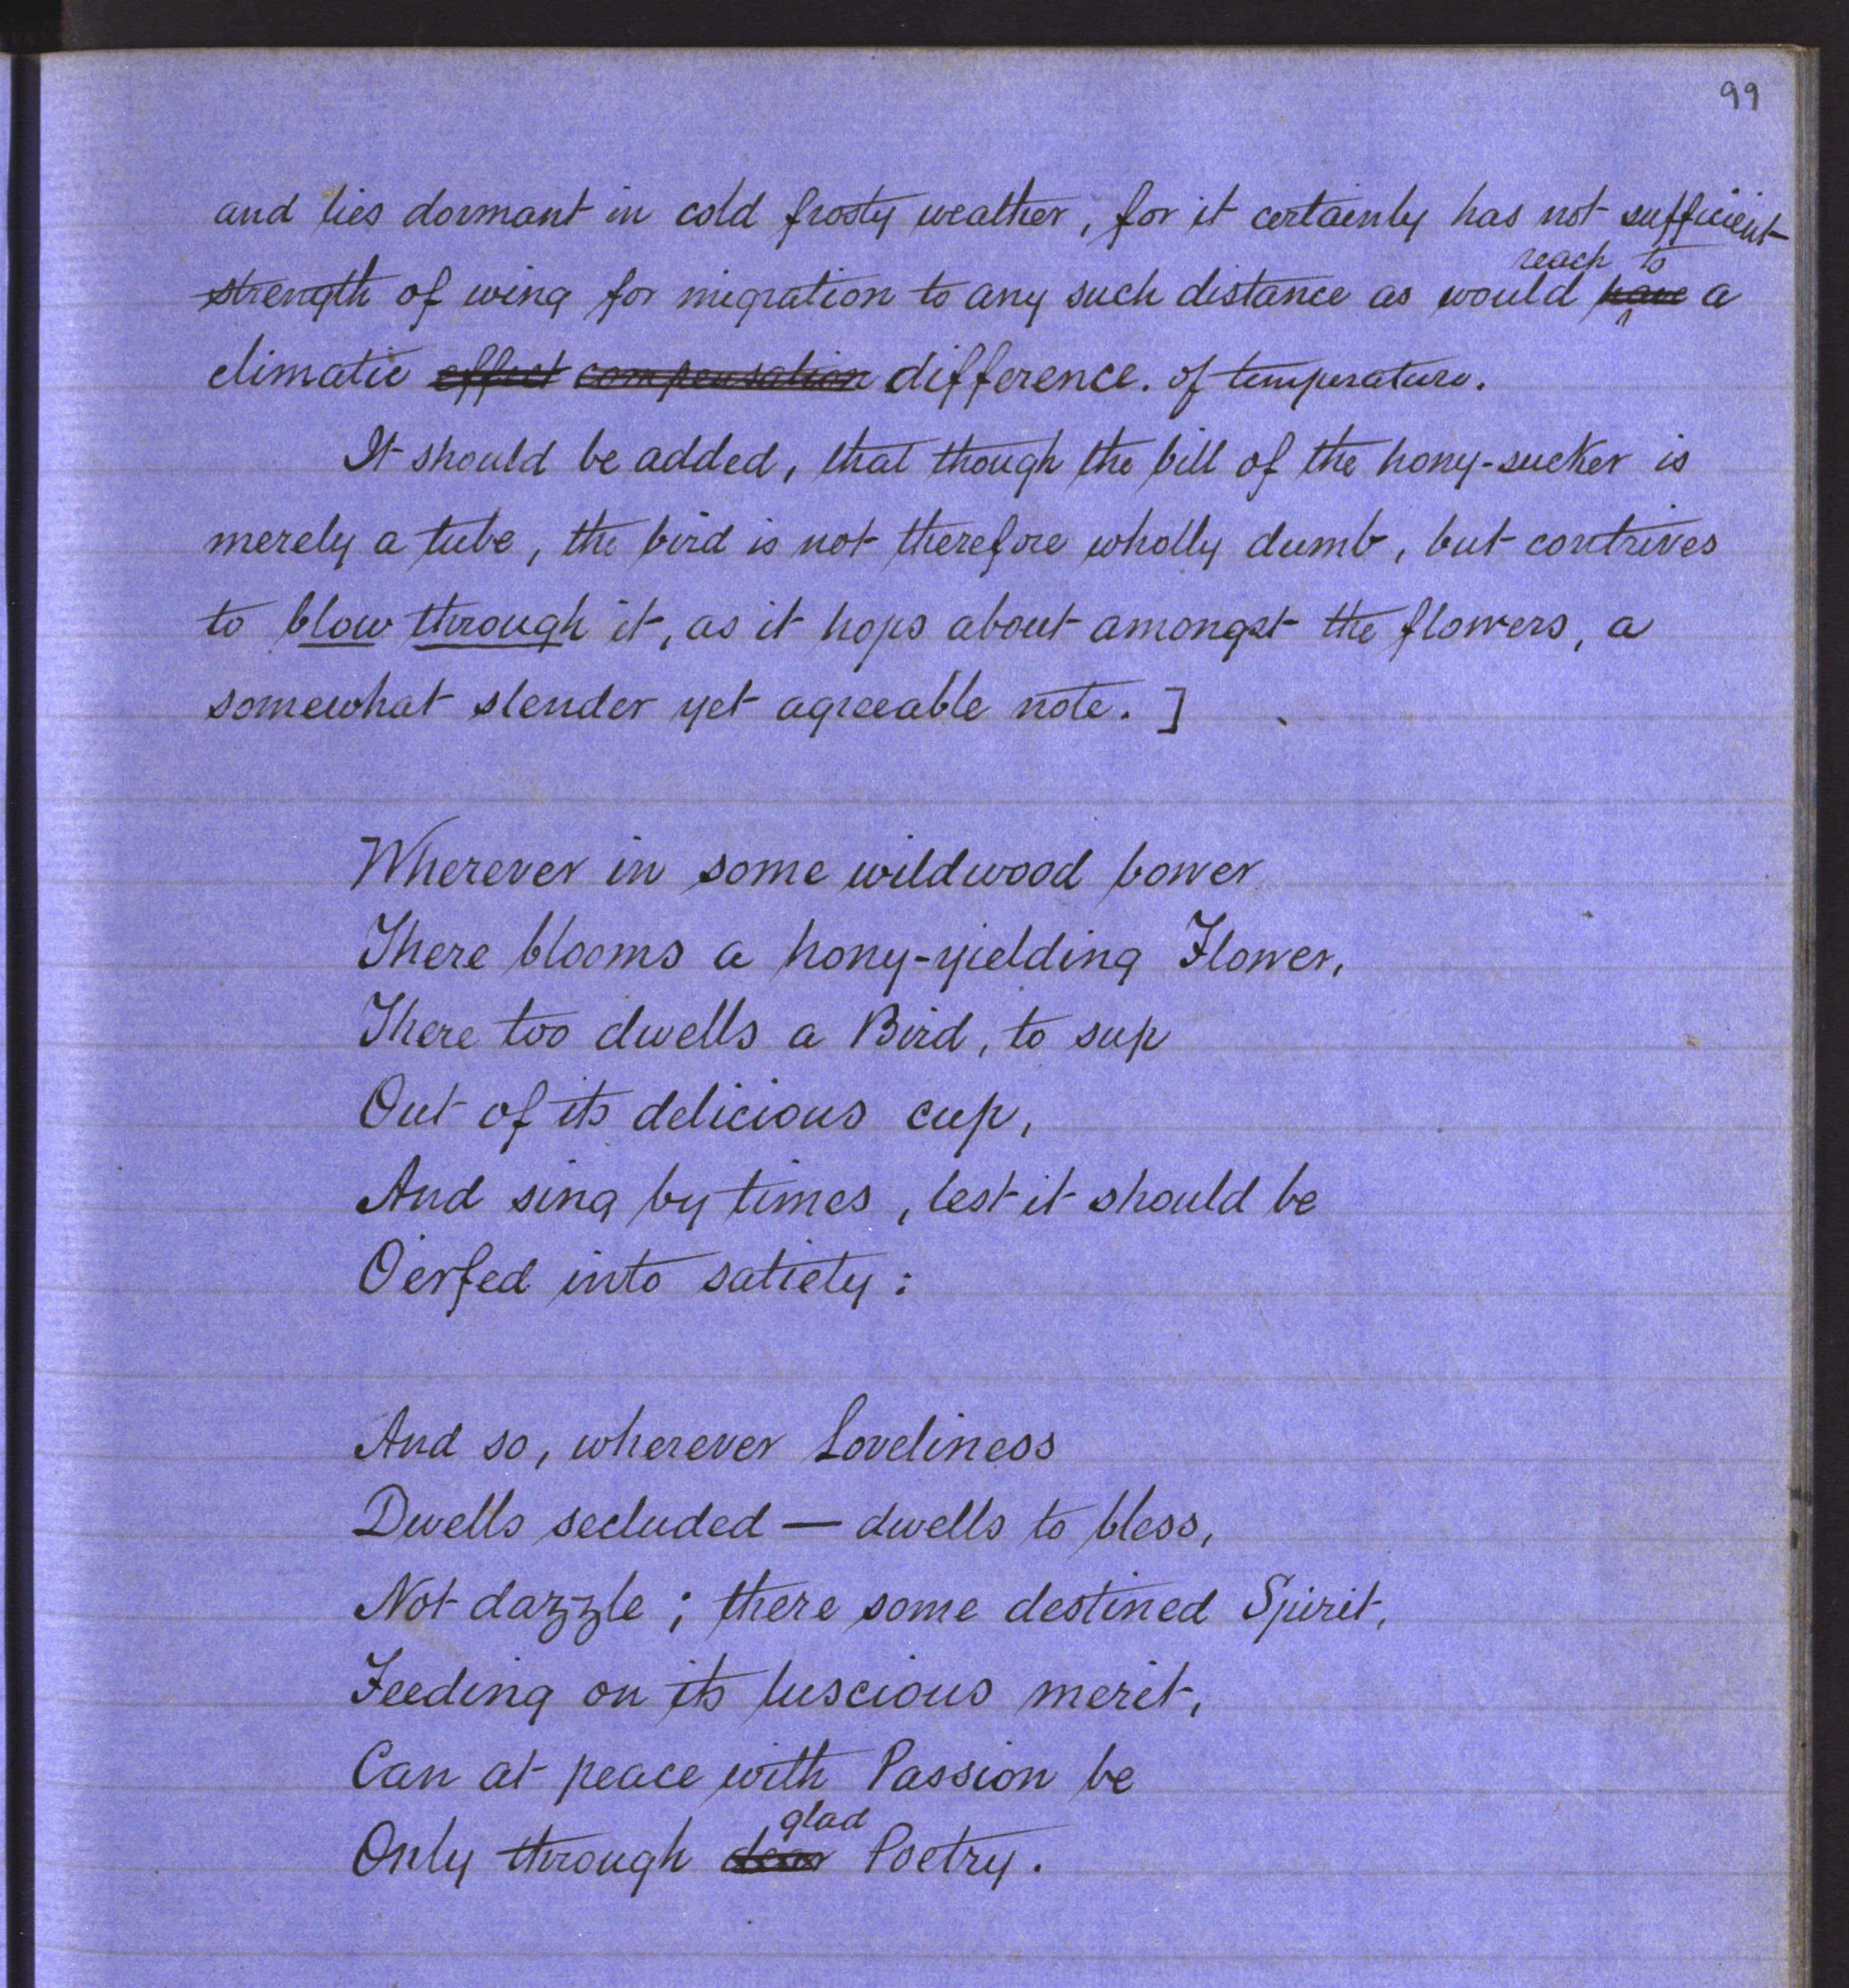 99
and lies dormant in cold frosty weather, for it certainly has not sufficient
reach to
strength of wing for migration to any such distance as would have a
climatic effect compensation difference. of temperature.
It should be added, that though the bill of the hony-sucker is
merely a tube, the bird is not therefore wholly dumb, but contrives
to blow through it, as it hops about amongst the flowers, a
somewhat slender yet agreeable note.]
Wherever in some wildwood bower
There blooms a hony-yielding Flower,
There too dwells a Bird, to sup
Out of its delicious cup,
And sing by times, lest it should be
O'erfed into satiety:
And so, wherever Loveliness
Dwells secluded — dwells to bless,
Not dazzle; there some destined Spirit,
Feeding on its luscious merit,
Can at peace with Passion be
glad
Only through dear Poetry.